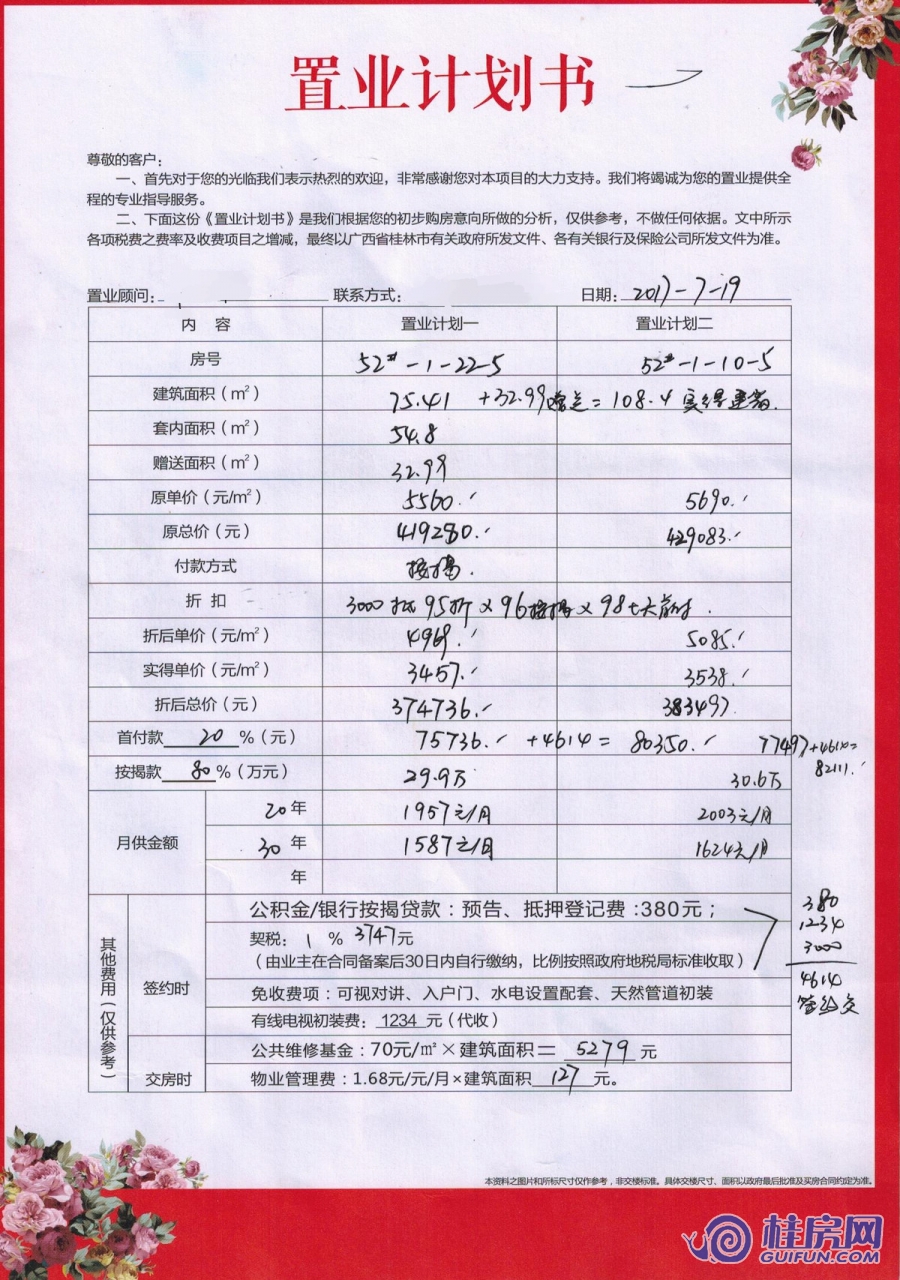 置业计划书
尊敬的客户：
一、首先对于您的光临我们表示热烈的欢迎，非常感谢您对本项目的大力支持。我们将竭诚为您的置业提供全
程的专业指导服务。
二、下面这份《置业计划书》是我们根据您的初步购房意向所做的分析，仅供参考，不做任何依据。文中所示
各项税费之费率及收费项目之增减，最终以广西省桂林市有关政府所发文件、各有关银行及保险公司所发文件为准。
置业顾问： 联系方式： 日期：2017-7-19
内 容 置业计划一 置业计划二
房号 52#-1-22-5 52#-1-10-5
建筑面积（m²） 75.41 +32.99赠送=108.4
套内面积（m²） 54.8
赠送面积（m²） 32.99
原单价（元/m²） 5560. 5690.
原总价（元） 419280. 429083.
付款方式 按揭.
折 扣 3000抵95折×96按揭×98七天前付.
折后单价（元/m²） 4969. 5085.
实得单价（元/m²） 3457. 3538.
折后总价（元） 374736. 383497.
首付款 20 %（元） 75736. +4614= 80350. 77497+4614=
82111.
按揭款 80 %（万元） 29.9万 30.6万
月供金额
20年 1957元/月 2003元/月
30年 1587元/月 1624元/月
年
其他费用（仅供参考）
签约时
公积金/银行按揭贷款：预告、抵押登记费：380元；
契税： 1 % 3747元
（由业主在合同备案后30日内自行缴纳，比例按照政府地税局标准收取）
免收费项：可视对讲、入户门、水电设置配套、天然管道初装
有线电视初装费： 1234 元（代收）
380
1234
3000
4614
签约交
交房时
公共维修基金：70元/㎡×建筑面积＝ 5279 元
物业管理费：1.68元/元/月×建筑面积 127 元。
本资料之图片和所标尺寸仅作参考，非交楼标准。具体交楼尺寸、面积以政府最后批准及买房合同约定为准。
桂房网
GUIFUN.COM